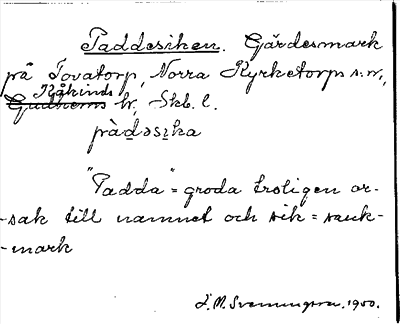 Paddesiken. Gärdesmark
på Tovatorp, Norra Kyrketorps s:n,
Kåkinds
Gudhems hr, Skb. l.
pàdəsika
"Padda" = groda troligen or-
-sak till namnet och sik = sank-
-mark
1950.